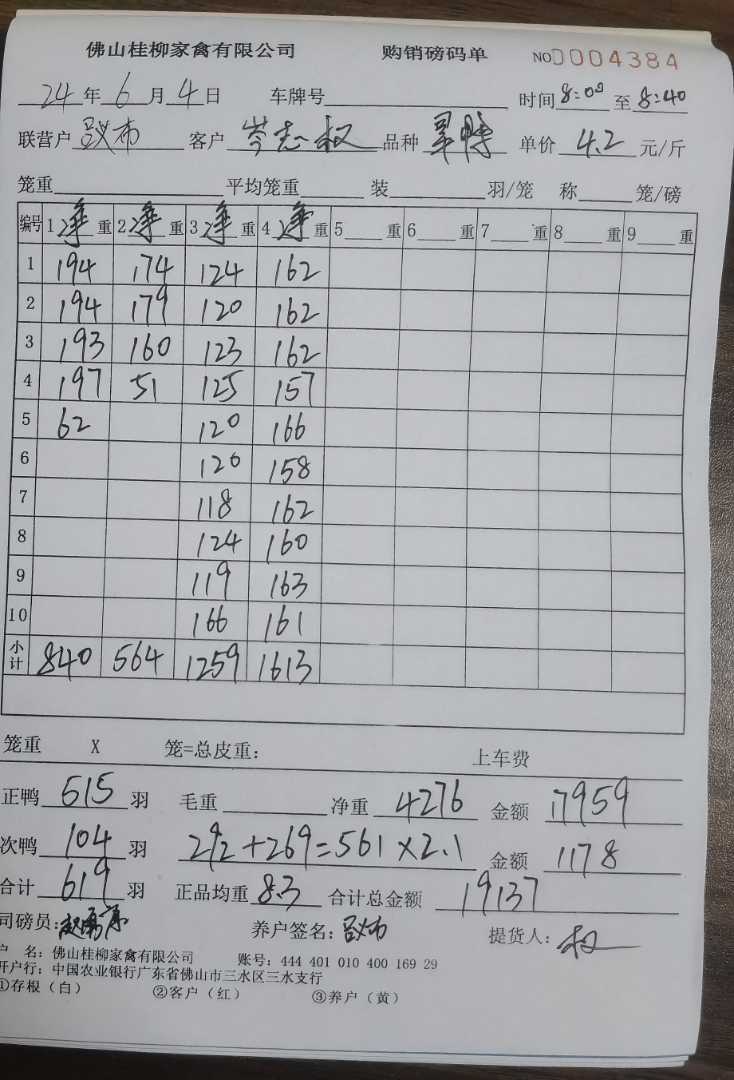 佛山桂柳家禽有限公司 购销磅码单 NO 0004384
24年6月4日 车牌号 时间8:00至8:40
联营户 吕义布 客户 岑志权 品种 单价 4.2 元/斤
笼重 平均笼重 装 羽/笼 称 笼/磅
编号 1净重 2净重 3净重 4净重 5 重 6 重 7 重 8 重 9 重
1 194 174 124 162
2 194 179 120 162
3 193 160 123 162
4 197 51 125 157
5 62 120 166
6 120 158
7 118 162
8 124 160
9 119 163
10 166 161
小计 840 564 1259 1613
笼重 X 笼=总皮重: 上车费
正鸭 515 羽 毛重 净重 4276 金额 17959
次鸭 104 羽 292+269=561×2.1 金额 1178
合计 619 羽 正品均重 8.3 合计总金额 19137
司磅员: 养户签名: 吕义布 提货人: 权
户 名: 佛山桂柳家禽有限公司 账号: 444 401 010 400 169 29
开户行: 中国农业银行广东省佛山市三水区三水支行
①存根(白) ②客户(红) ③养户(黄)